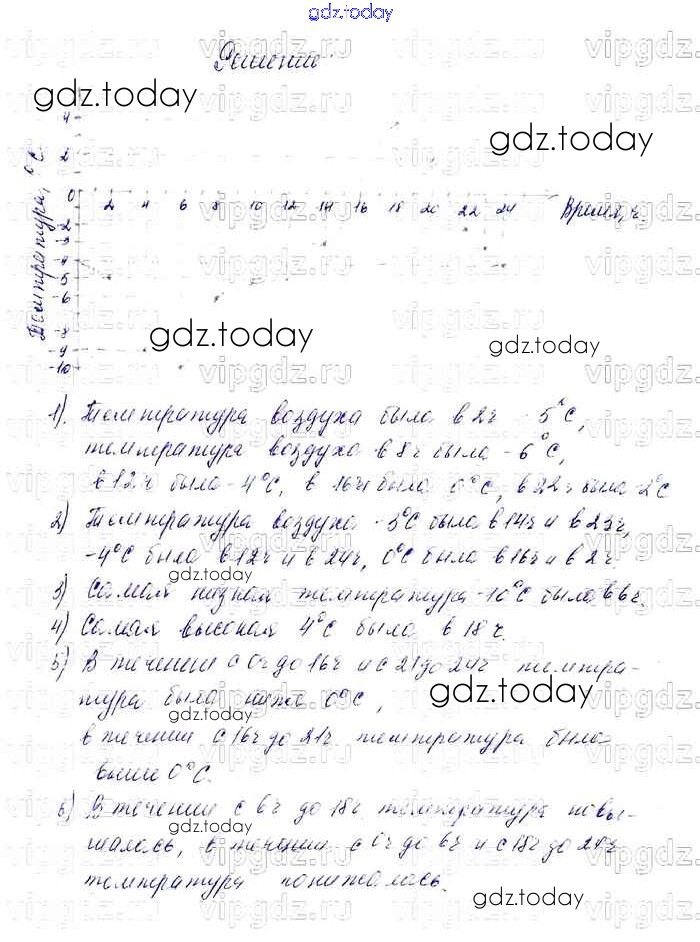 gdz.today
Решение
gdz.today
4
2
0
2 4 6 8 10 12 14 16 18 20 22 24 Время, ч.
-2
-3
-4
-5
-6
-8
-9
-10
Температура, °C
gdz.today
gdz.today
gdz.today
1). Температура воздуха была в 2ч -5°C,
температура воздуха в 8ч была -6°C,
в 12ч была -4°C, в 16ч была 0°C, в 22ч была -2°C
2) Температура воздуха -3°C была в 14ч и в 23ч,
-4°C была в 12ч и в 24ч, 0°C была в 16ч и в 2ч
gdz.today
3) Самая низкая температура -10°C была в 6ч.
4) Самая высокая 4°C была в 18ч.
5) В течении с 0ч до 16ч и с 21 до 24ч темпера-
тура была ниже 0°C,
gdz.today
gdz.today
в течении с 16ч до 21ч температура была
выше 0°C.
6) В течении с 6ч до 18ч температура повы-
шалась, в течении с 0ч до 6ч и с 18ч до 24ч
gdz.today
температура понижалась.
gdz.today
vipgdz.ru